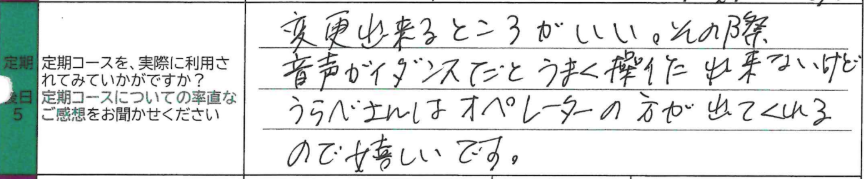 定期
後日
5
定期コースを、実際に利用さ
れてみていかがですか?
定期コースについての率直な
ご感想をお聞かせください
変更出来るところがいい。その際
音声ガイダンスだとうまく操作た出来ないけど
うらべさんはオペレーターの方が出てくれる
ので嬉しいです。